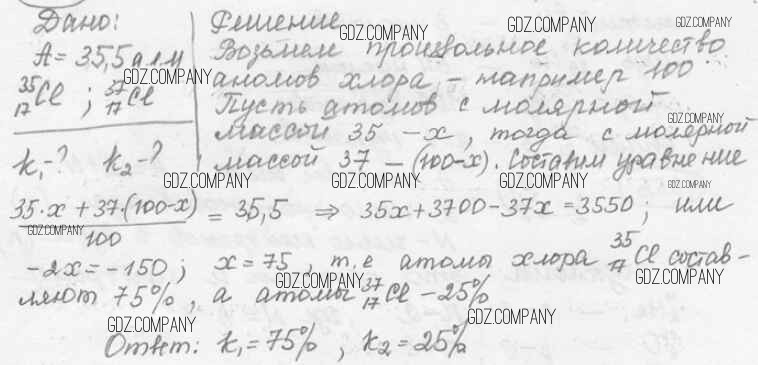 Дано: Решение
A = 35,5 а.е.м Возьмем произвольное количество
³⁵₁₇Cl ; ³⁷₁₇Cl атомов хлора – например 100
Пусть атомов с молярной
массой 35 – x, тогда с молярной
k₁-? k₂-? массой 37 – (100-x). Составим уравнение
(35·x + 37·(100-x))/100 = 35,5 ⇒ 35x+3700-37x=3550; или
-2x=-150; x=75, т.е атомы хлора ³⁵₁₇Cl состав-
ляют 75%, а атомы ³⁷₁₇Cl – 25%
Ответ: k₁=75%, k₂=25%
GDZ.COMPANY
GDZ.COMPANY
GDZ.COMPANY
GDZ.COMPANY
GDZ.COMPANY
GDZ.COMPANY
GDZ.COMPANY
GDZ.COMPANY
GDZ.COMPANY
GDZ.COMPANY
GDZ.COMPANY
GDZ.COMPANY
GDZ.COMPANY
GDZ.COMPANY